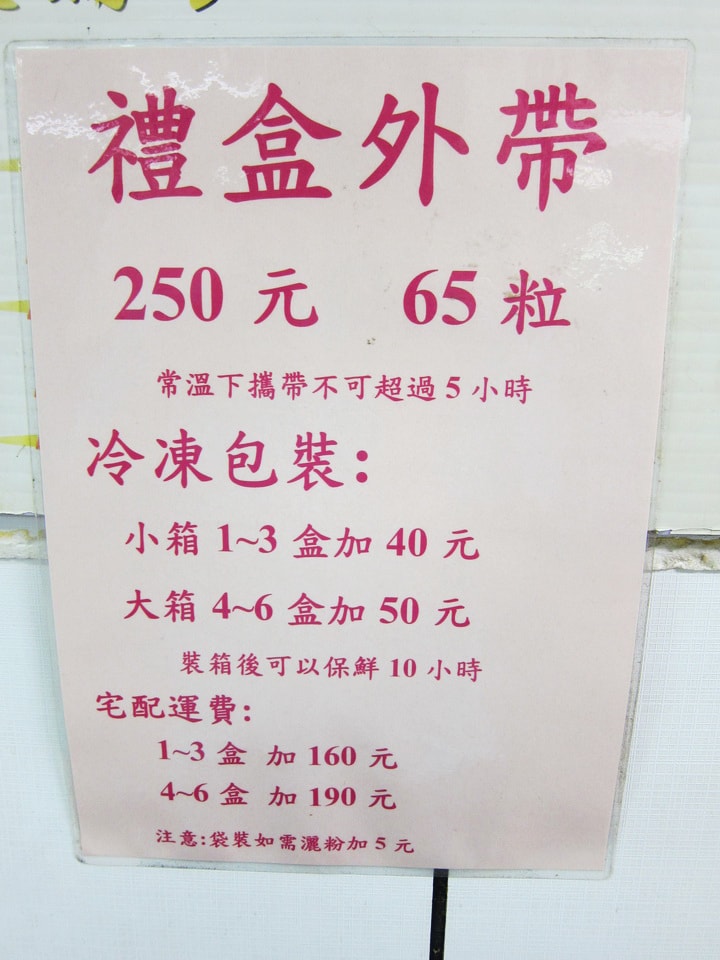 禮盒外帶
250 元 65 粒
常溫下攜帶不可超過 5 小時
冷凍包裝:
小箱 1~3 盒加 40 元
大箱 4~6 盒加 50 元
裝箱後可以保鮮 10 小時
宅配運費:
1~3 盒 加 160 元
4~6 盒 加 190 元
注意:袋裝如需灑粉加 5 元